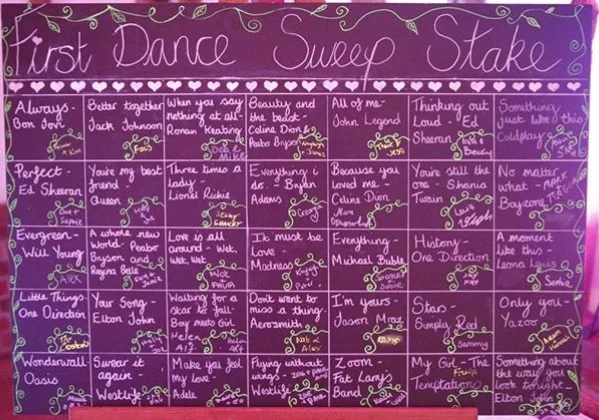 First Dance Sweep Stake
Always -
Bon Jovi
Better together
Jack Johnson
Fois
When you say
nothing at all -
Ronan Keating
Mike
Beauty and
the beast -
Celine Dion &
Peabo Bryson
All of me -
John Legend
Jess
Thinking out
Loud - Ed
Sheeran
Something
just like this
Coldplay
Perfect -
Ed Sheeran
Sophie
You're my best
friend -
Queen
Three times a
Lady -
Lionel Richie
Everything i
do - Bryan
Adams
George
Because you
Loved me -
Celine Dion
You're still the
one - Shania
Twain
No matter
what -
Boyzone
Evergreen -
Will Young
Alex
A whole new
World - Peabo
Bryson and
Regina Belle
Love is all
around - Wet,
Wet, Wet
It must be
Love -
Madness
Everything -
Michael Buble
History -
One Direction
A moment
like this -
Leona Lewis
Little Things -
One Direction
Your Song -
Elton John
Waiting for a
star to fall -
Boy meets Girl
Don't want to
miss a thing -
Aerosmith
Alex
I'm yours -
Jason Mraz
Stars -
Simply Red
Sammy
Only you -
Yazoo
Wonderwall
Oasis
Swear it
again -
Westlife
Make you feel
my Love -
Adele
Flying without
wings -
Westlife
Zoom -
Fat Larry's
Band
My Girl - The
Temptations
Something about
the way you
look tonight -
Elton John